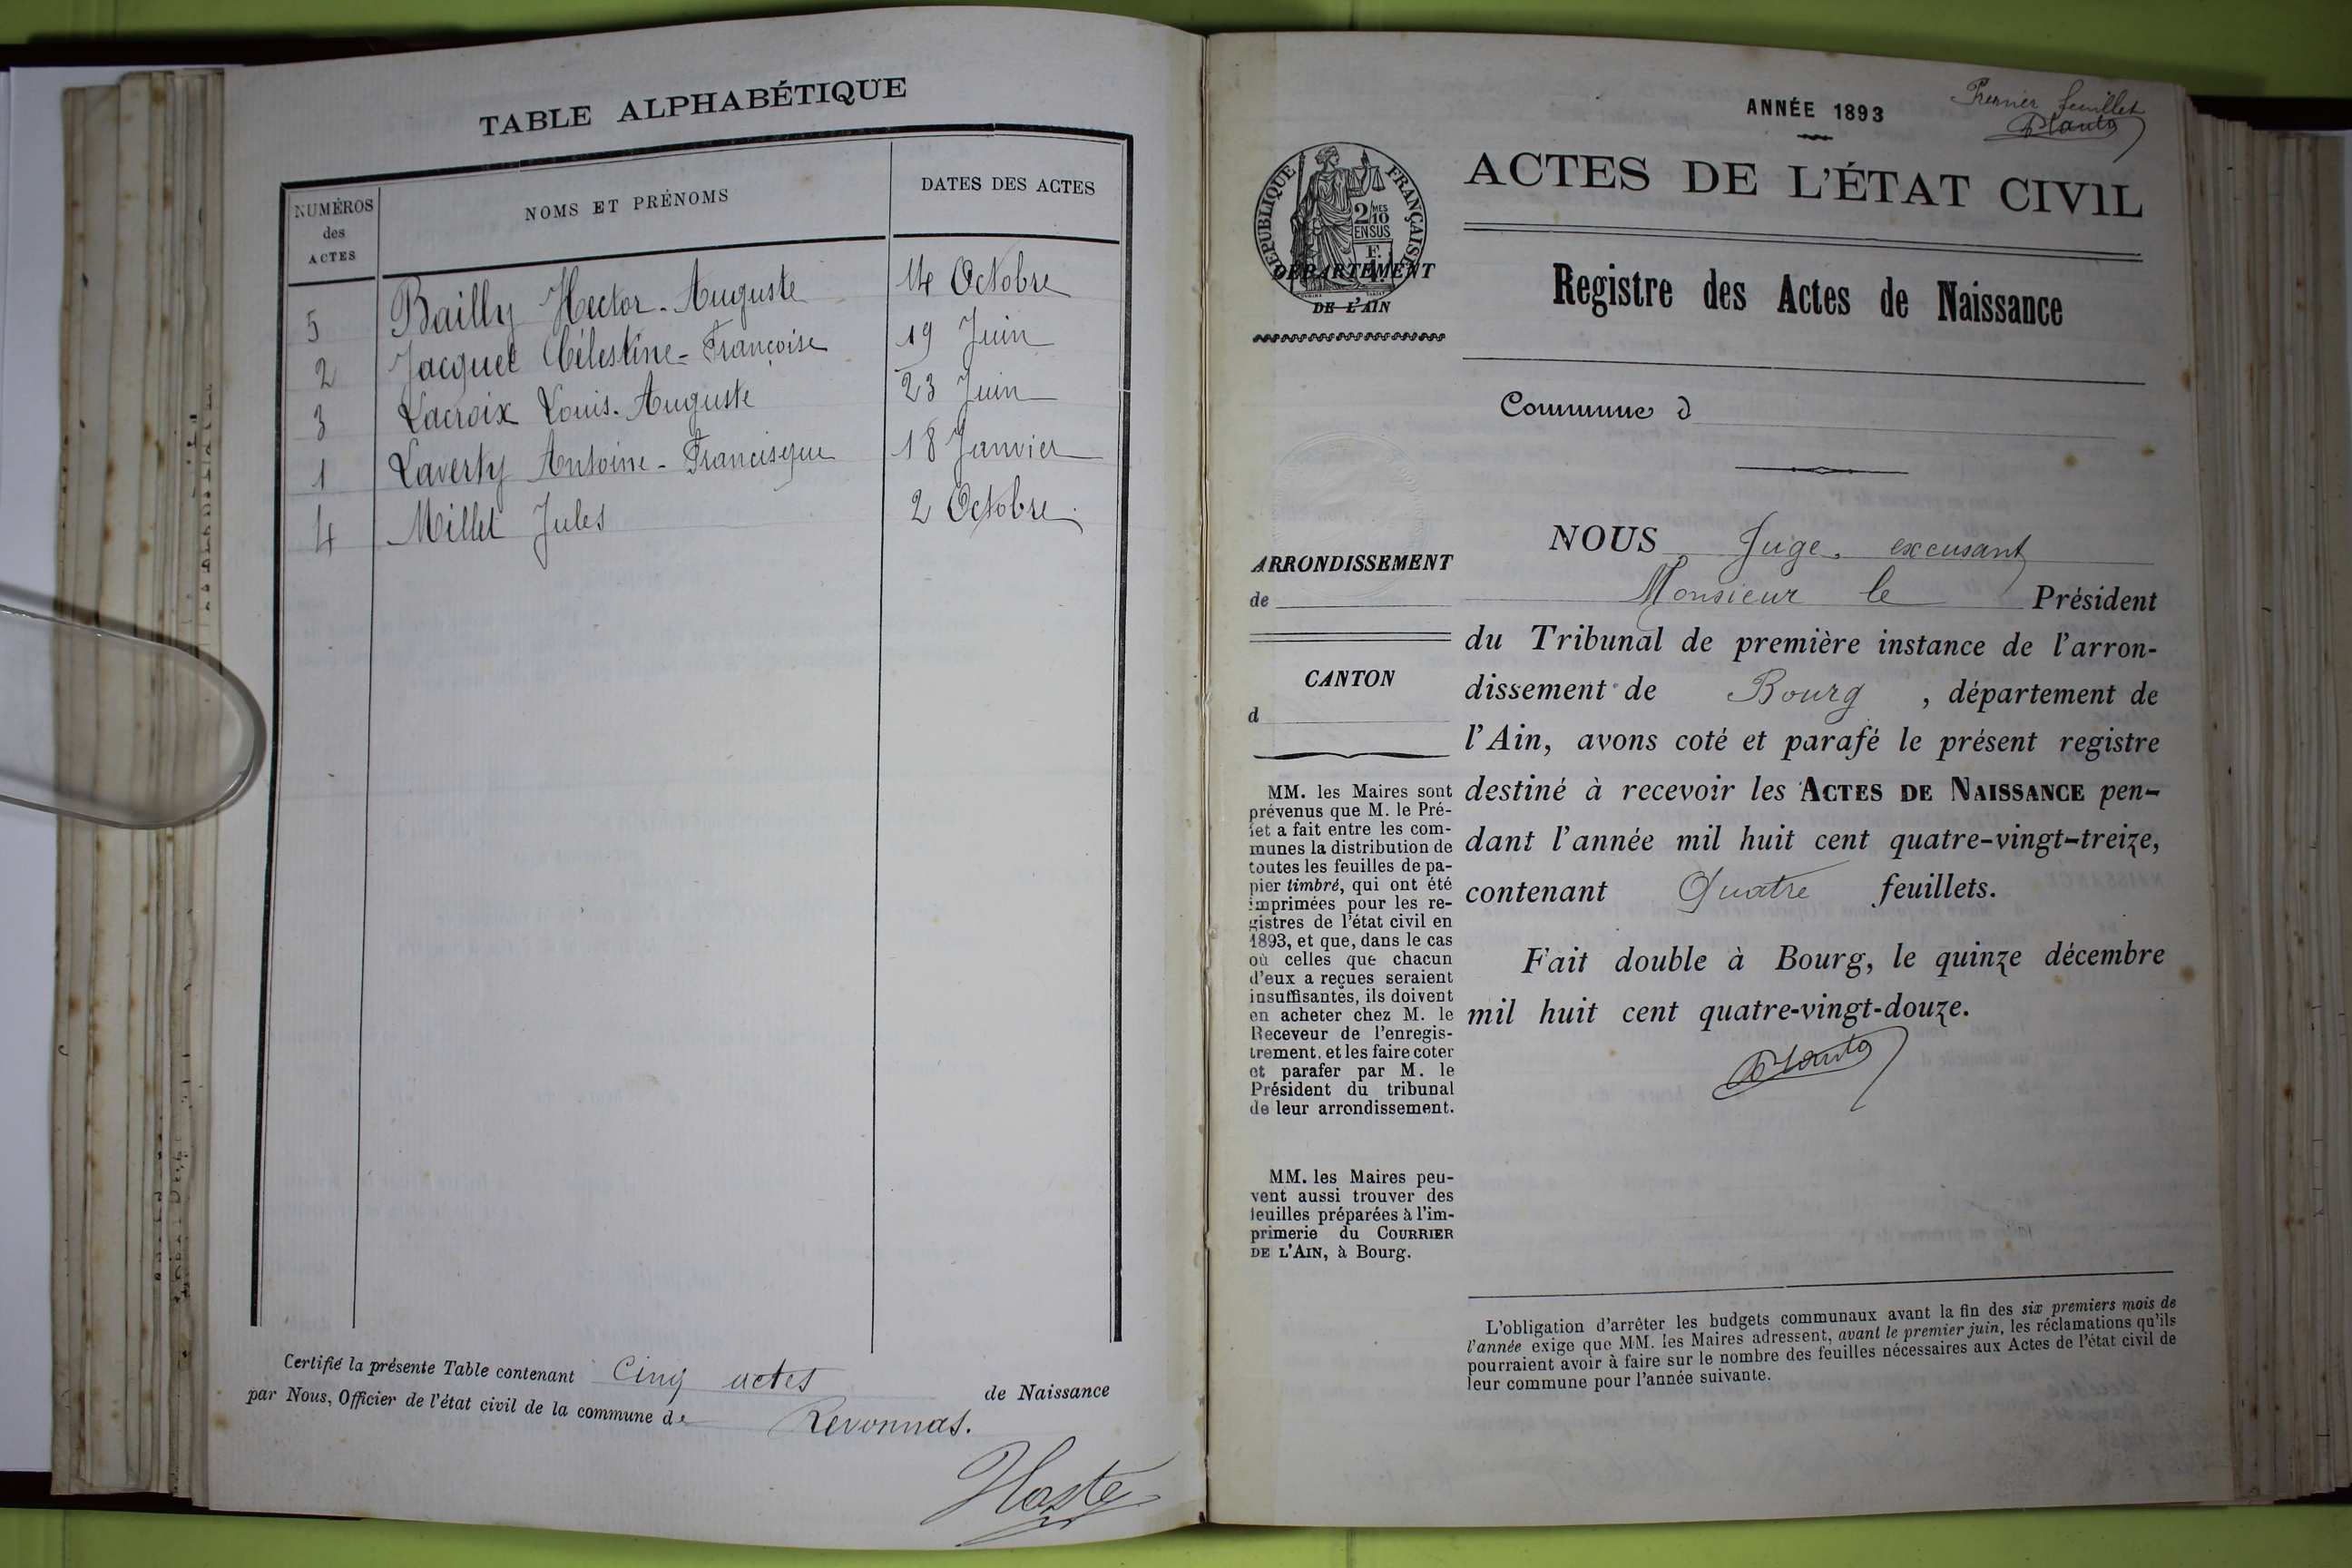 TABLE ALPHABÉTIQUE
NUMÉROS des ACTES
NOMS ET PRÉNOMS
DATES DES ACTES
5 Bailly Hector-Auguste 14 Octobre
2 Jacquet Célestine-Françoise 19 Juin
3 Lacroix Louis-Auguste 23 Juin
1 Laverty Antoine-Francisque 18 Janvier
4 Millet Jules 2 Octobre
Certifié la présente Table contenant Cinq actes de Naissance
par Nous, Officier de l'état civil de la commune de Revonnas.
Premier feuillet
ANNÉE 1893
ACTES DE L'ÉTAT CIVIL
RÉPUBLIQUE FRANÇAISE
2/10MES
EN SUS
DÉPARTEMENT
DE L'AIN
Registre des Actes de Naissance
Commune d
NOUS Juge excusant
Monsieur le Président
du Tribunal de première instance de l'arron-
dissement de Bourg, département de
l'Ain, avons coté et parafé le présent registre
destiné à recevoir les ACTES DE NAISSANCE pen-
dant l'année mil huit cent quatre-vingt-treize,
contenant Quatre feuillets.
Fait double à Bourg, le quinze décembre
mil huit cent quatre-vingt-douze.
ARRONDISSEMENT
de
CANTON
d
MM. les Maires sont
prévenus que M. le Pré-
fet a fait entre les com-
munes la distribution de
toutes les feuilles de pa-
pier timbré, qui ont été
imprimées pour les re-
gistres de l'état civil en
1893, et que, dans le cas
où celles que chacun
d'eux a reçues seraient
insuffisantes, ils doivent
en acheter chez M. le
Receveur de l'enregis-
trement, et les faire coter
et parafer par M. le
Président du tribunal
de leur arrondissement.
MM. les Maires peu-
vent aussi trouver des
feuilles préparées à l'im-
primerie du COURRIER
DE L'AIN, à Bourg.
L'obligation d'arrêter les budgets communaux avant la fin des six premiers mois de
l'année exige que MM. les Maires adressent, avant le premier juin, les réclamations qu'ils
pourraient avoir à faire sur le nombre des feuilles nécessaires aux Actes de l'état civil de
leur commune pour l'année suivante.